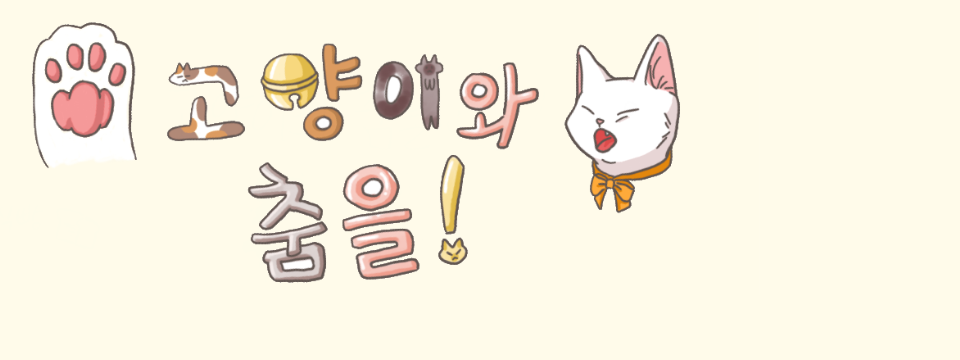 고양이와
춤을!